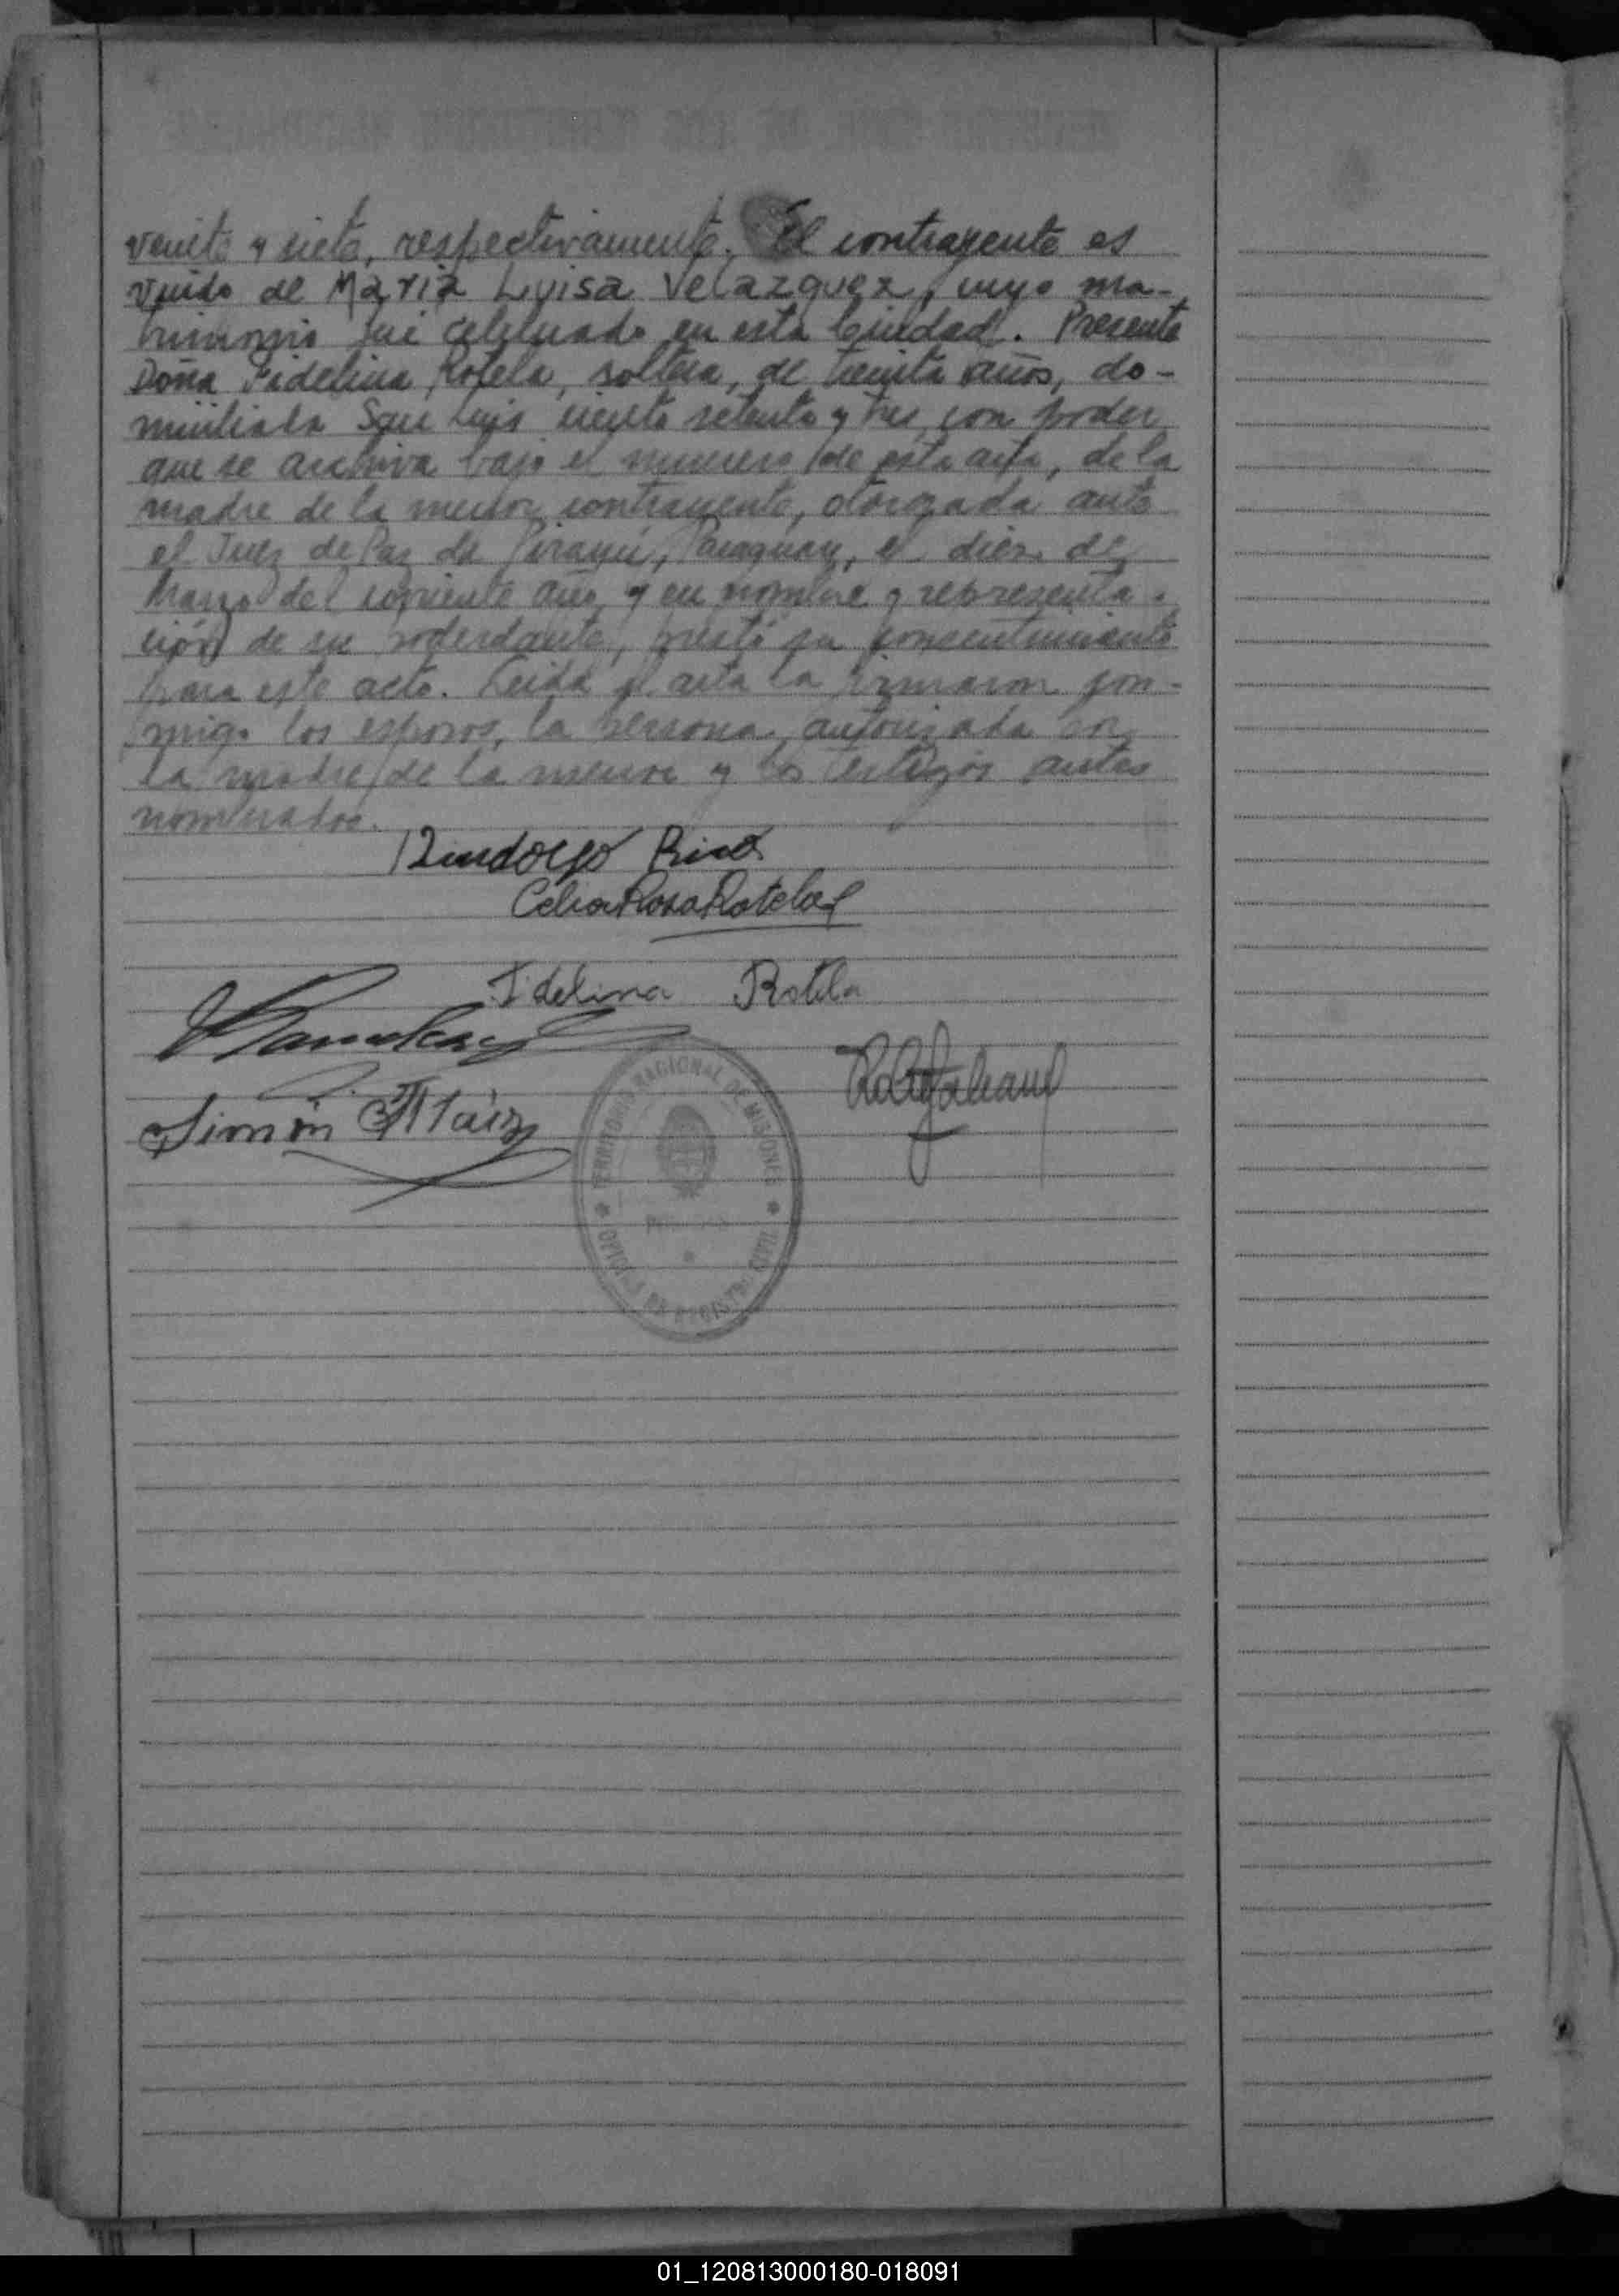 veinte y siete, respectivamente. El contrayente es
viudo de María Luisa Velazquez, cuyo ma-
trimonio fué celebrado en esta Ciudad. Presente
Doña Fidelina Rotela, soltera, de treinta años, do-
miciliada San Luis ciento setenta y tres, con poder
que se archiva bajo el numero de esta acta, de la
madre de la menor contrayente, otorgada ante
el Juez de Paz de Pirayú, Paraguay, el diez de
Marzo del corriente año, y en nombre y representa-
ción de su poderdante, prestó su consentimiento
para este acto. Leida el acta la firmaron con-
migo los esposos, la persona autorizada por
la madre de la menor y los testigos antes
nombrados.
Celia Rosa Rotela
Fidelina Rotela
Simón Maíz
TERRITORIO NACIONAL DE MISIONES
OFICINA DE REGISTRO CIVIL
01_120813000180-018091